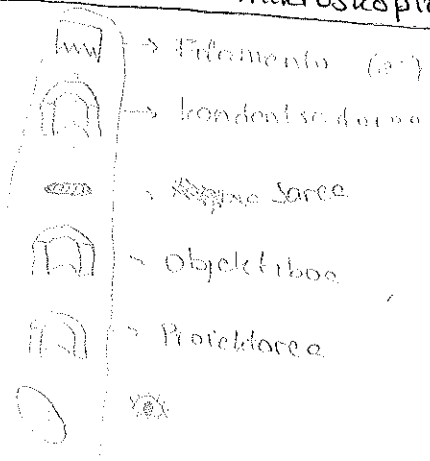 mikroskopi
→ Filamentu (e⁻)
→ kondentsadorea
Sarea
~ Objektiboa
~ Proiektorea